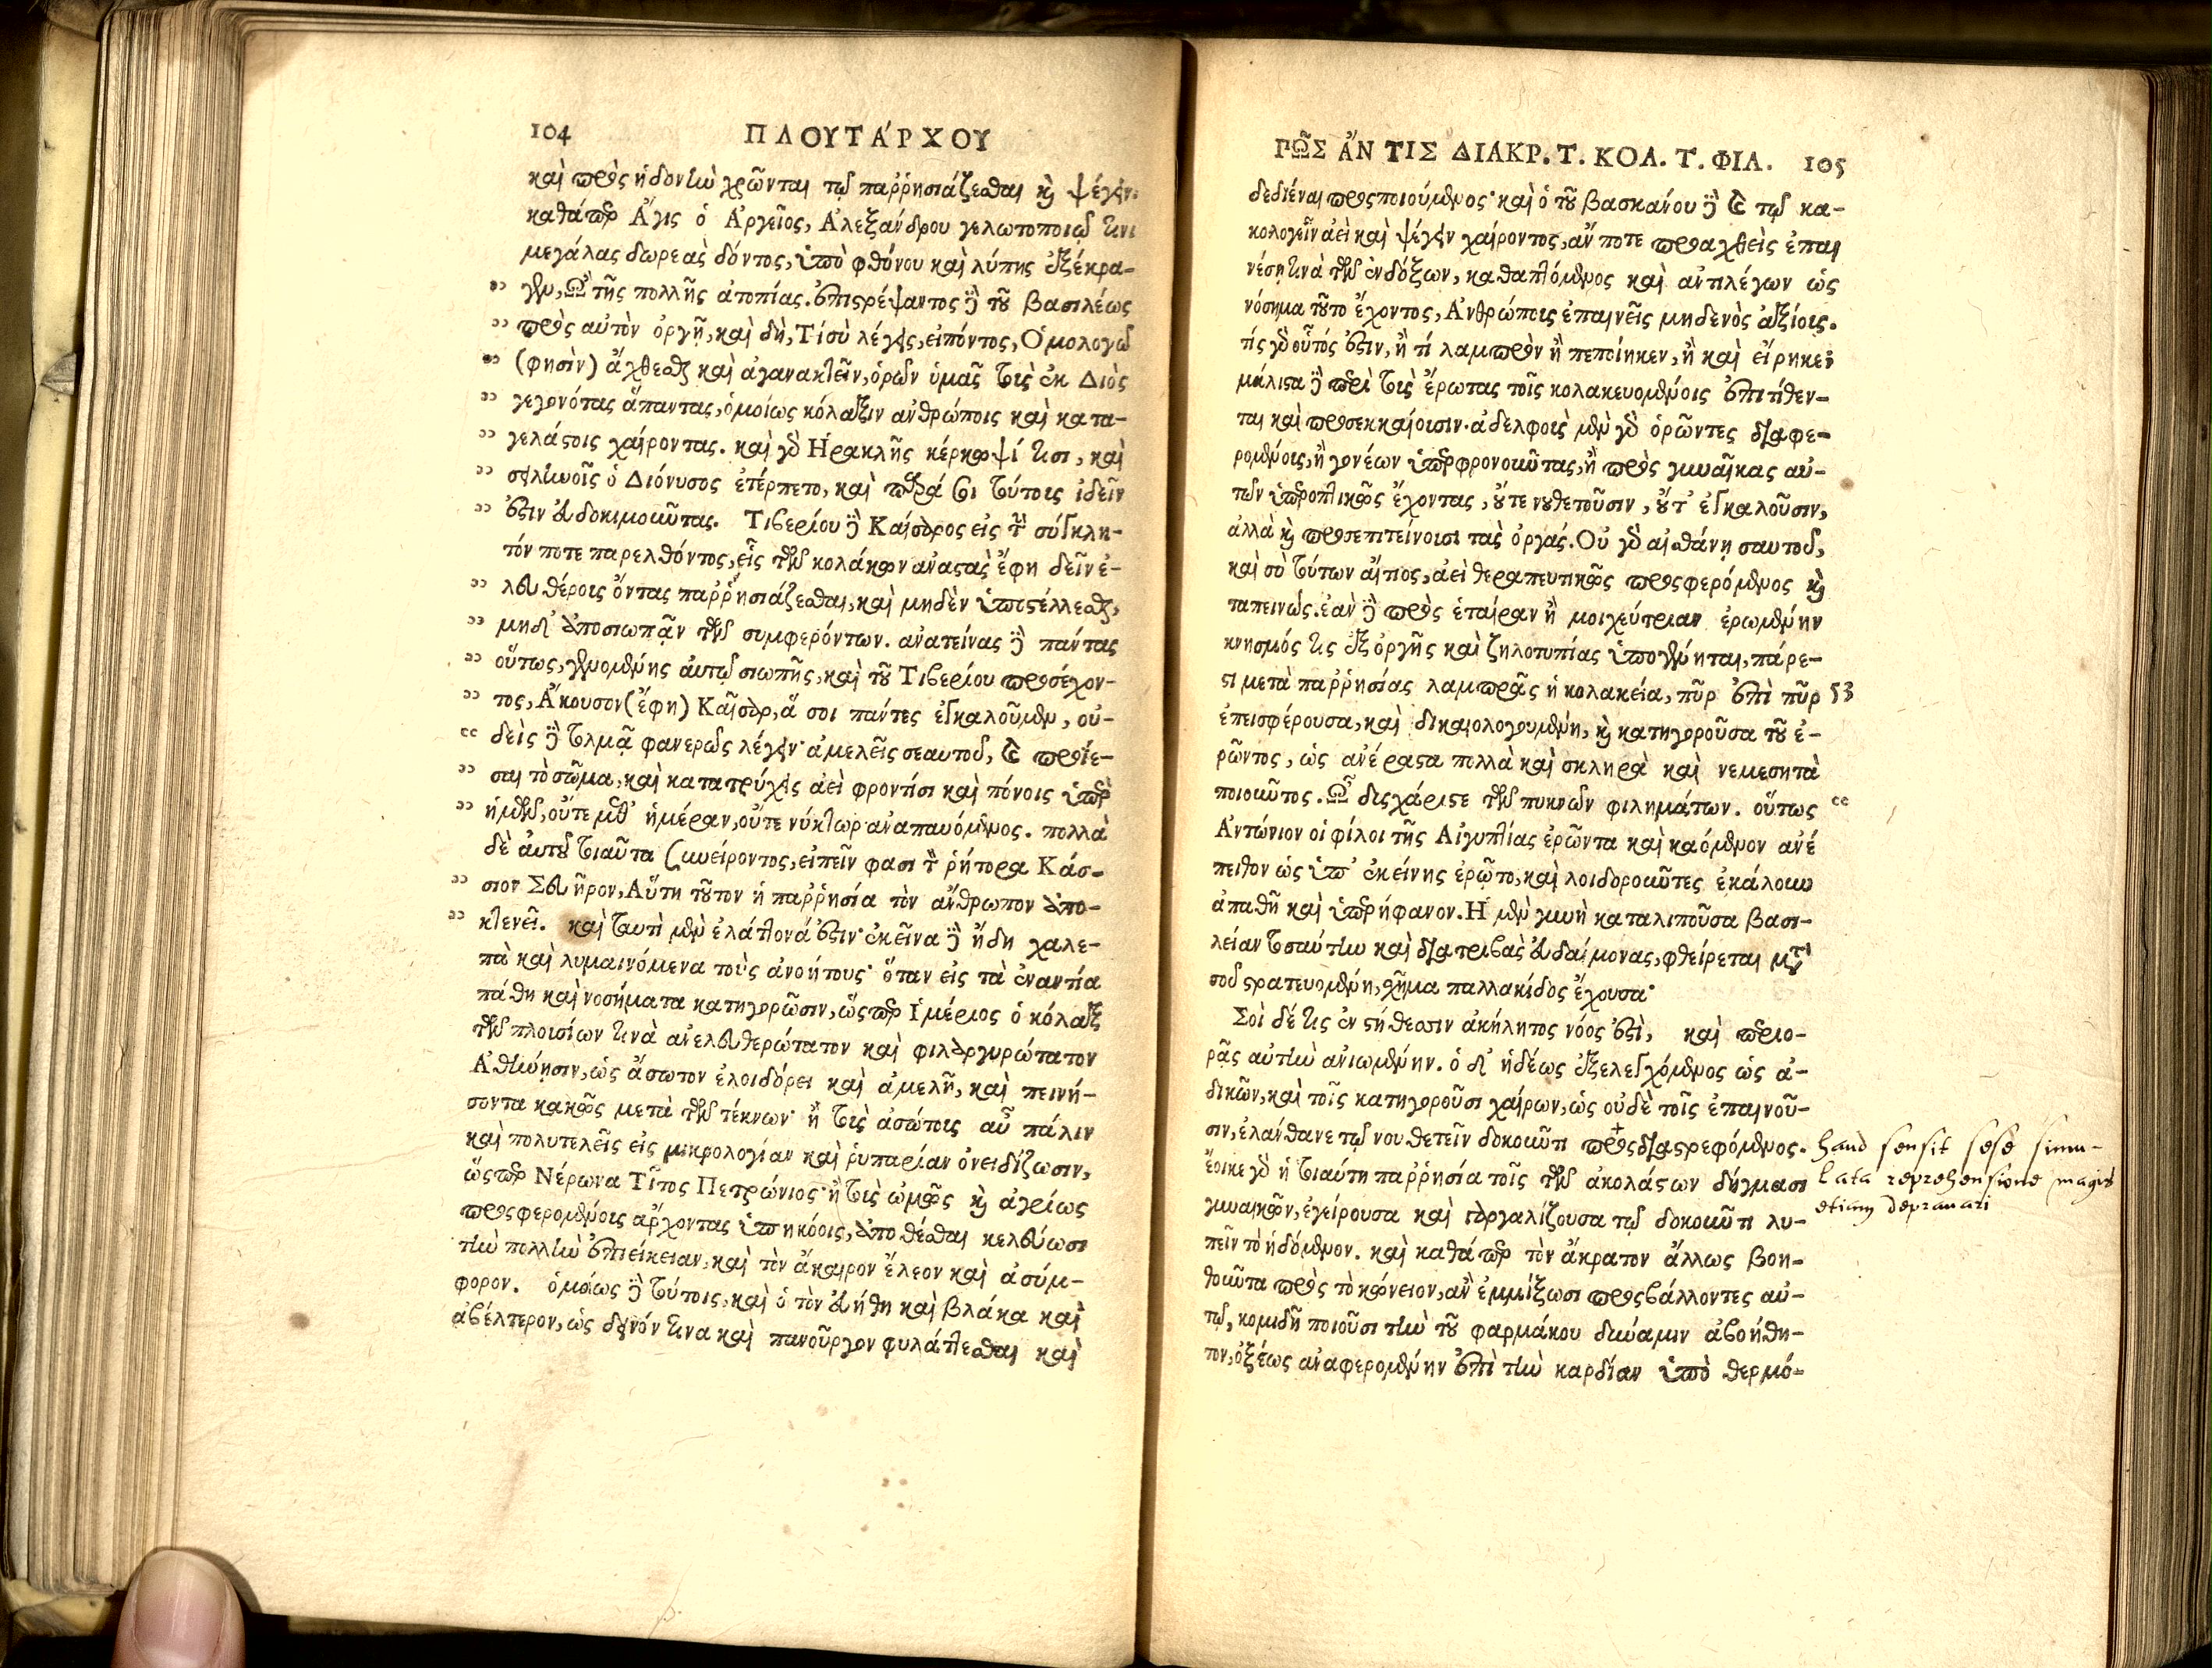 104 ΠΛΟΥΤΑ'ΡΧΟΥ
καὶ πρὸς ἡδονὴν χρῶνται τῷ παῤῥησιάζεσθαι καὶ ψέγειν.
καθάπερ Ἆγις ὁ Ἀργεῖος, Ἀλεξάνδρου γελωτοποιῷ τινι
μεγάλας δωρεὰς δόντος, ὑπὸ φθόνου καὶ λύπης ἐξέκρα-
γεν, Ὢ τῆς πολλῆς ἀτοπίας. ἐπιστρέψαντος δὲ τοῦ βασιλέως
πρὸς αὐτὸν ὀργῇ, καὶ δὴ, Τί σὺ λέγεις, εἰπόντος, Ὁμολογῶ
(φησὶν) ἄχθεσθαι καὶ ἀγανακτεῖν, ὁρῶν ὑμᾶς τοὺς ἐκ Διὸς
γεγονότας ἅπαντας, ὁμοίως κόλαξιν ἀνθρώποις καὶ κατα-
γελάστοις χαίροντας. καὶ γὰρ Ἡρακλῆς κέρκωψί τισι, καὶ
σειληνοῖς ὁ Διόνυσος ἐτέρπετο, καὶ παρά σοι τούτοις ἰδεῖν
ἔστιν εὐδοκιμοῦντας. Τιβερίου δὲ Καίσαρος εἰς τὴν σύγκλη-
τόν ποτε παρελθόντος, εἷς τῶν κολάκων ἀναστὰς ἔφη δεῖν ἐ-
λευθέρους ὄντας παῤῥησιάζεσθαι, καὶ μηδὲν ὑποστέλλεσθαι,
μηδ' ἀποσιωπᾶν τῶν συμφερόντων. ἀνατείνας δὲ πάντας
οὕτως, γενομένης αὐτῷ σιωπῆς, καὶ τοῦ Τιβερίου προσέχον-
τος, Ἄκουσον (ἔφη) Καῖσαρ, ἅ σοι πάντες ἐγκαλοῦμεν, οὐ-
δεὶς δὲ τολμᾷ φανερῶς λέγειν· ἀμελεῖς σεαυτοῦ, καὶ προΐε-
σαι τὸ σῶμα, καὶ κατατρύχεις ἀεὶ φροντίσι καὶ πόνοις ὑπὲρ
ἡμῶν, οὔτε μεθ' ἡμέραν, οὔτε νύκτωρ ἀναπαυόμενος. πολλὰ
δὲ αὐτοῦ τοιαῦτα συνείροντος, εἰπεῖν φασι τὸν ῥήτορα Κάσ-
σιον Σευῆρον, Αὕτη τοῦτον ἡ παῤῥησία τὸν ἄνθρωπον ἀπο-
κτενεῖ. καὶ ταυτὶ μὲν ἐλάττονά ἐστιν· ἐκεῖνα δὲ ἤδη χαλε-
πὰ καὶ λυμαινόμενα τοὺς ἀνοήτους· ὅταν εἰς τὰ ἐναντία
πάθη καὶ νοσήματα κατηγορῶσιν, ὥσπερ Ἱμέριος ὁ κόλαξ
τῶν πλουσίων τινὰ ἀνελευθερώτατον καὶ φιλαργυρώτατον
Ἀθήνησιν, ὡς ἄσωτον ἐλοιδόρει καὶ ἀμελῆ, καὶ πεινή-
σοντα κακῶς μετὰ τῶν τέκνων· ἢ τοὺς ἀσώτους αὖ πάλιν
καὶ πολυτελεῖς εἰς μικρολογίαν καὶ ῥυπαρίαν ὀνειδίζωσιν,
ὥσπερ Νέρωνα Τίτος Πετρώνιος· ἢ τοὺς ὠμῶς καὶ ἀγρίως
προσφερομένους ἄρχοντας ὑπηκόοις, ἀποθέσθαι κελεύωσι
τὴν πολλὴν ἐπιείκειαν, καὶ τὸν ἄκαιρον ἔλεον καὶ ἀσύμ-
φορον. ὁμοίως δὲ τούτοις, καὶ ὁ τὸν εὐήθη καὶ βλάκα καὶ
ἀβέλτερον, ὡς δεινόν τινα καὶ πανοῦργον φυλάττεσθαι καὶ
ΠΩ͂Σ ἌΝ ΤΙΣ ΔΙΑΚΡ. Τ. ΚΟΛ. Τ. ΦΙΛ. 105
δεδιέναι προσποιούμενος· καὶ ὁ τοῦ βασκάνου δὲ καὶ τῷ κα-
κολογεῖν ἀεὶ καὶ ψέγειν χαίροντος, ἄν ποτε προαχθεὶς ἐπαι
νέσῃ τινὰ τῶν ἐνδόξων, καθαπτόμενος καὶ ἀντιλέγων ὡς
νόσημα τοῦτο ἔχοντος, Ἀνθρώπους ἐπαινεῖς μηδενὸς ἀξίους.
τίς γὰρ οὗτός ἐστιν, ἢ τί λαμπρὸν ἢ πεποίηκεν, ἢ καὶ εἴρηκε;
μάλιστα δὲ περὶ τοὺς ἔρωτας τοῖς κολακευομένοις ἐπιτίθεν-
ται καὶ προσεκκαίουσιν. ἀδελφοῖς μὲν γὰρ ὁρῶντες διαφε-
ρομένους, ἢ γονέων ὑπερφρονοῦντας, ἢ πρὸς γυναῖκας αὐ-
τῶν ὑπεροπτικῶς ἔχοντας, οὔτε νουθετοῦσιν, οὔτ' ἐγκαλοῦσιν,
ἀλλὰ καὶ προσεπιτείνουσι τὰς ὀργάς. Οὐ γὰρ αἰσθάνῃ σαυτοῦ,
καὶ σὺ τούτων αἴτιος, ἀεὶ θεραπευτικῶς προσφερόμενος καὶ
ταπεινῶς. ἐὰν δὲ πρὸς ἑταίραν ἢ μοιχεύτριαν ἐρωμένην
κνησμός τις ἐξ ὀργῆς καὶ ζηλοτυπίας ὑπογένηται, πάρε-
στι μετὰ παῤῥησίας λαμπρᾶς ἡ κολακεία, πῦρ ἐπὶ πῦρ 53
ἐπεισφέρουσα, καὶ δικαιολογουμένη, καὶ κατηγοροῦσα τοῦ ἐ-
ρῶντος, ὡς ἀνέραστα πολλὰ καὶ σκληρὰ καὶ νεμεσητὰ
ποιοῦντος. Ὦ δυσχάριστε τῶν πυκνῶν φιλημάτων. οὕτως
Ἀντώνιον οἱ φίλοι τῆς Αἰγυπτίας ἐρῶντα καὶ καόμενον ἀνέ
πειθον ὡς ὑπ' ἐκείνης ἐρῷτο, καὶ λοιδοροῦντες ἐκάλουν
ἀπαθῆ καὶ ὑπερήφανον. Ἡ μὲν γυνὴ καταλιποῦσα βασι-
λείαν τοσαύτην καὶ διατριβὰς εὐδαίμονας, φθείρεται μετὰ
σοῦ στρατευομένη, σχῆμα παλλακίδος ἔχουσα·
Σοὶ δέ τις ἐν στήθεσσιν ἀκήλητος νόος ἐστὶ, καὶ περιο-
ρᾷς αὐτὴν ἀνιωμένην. ὁ δ' ἡδέως ἐξελεγχόμενος ὡς ἀ-
δικῶν, καὶ τοῖς κατηγοροῦσι χαίρων, ὡς οὐδὲ τοῖς ἐπαινοῦ-
σιν, ἐλάνθανε τῷ νουθετεῖν δοκοῦντι προσδιαστρεφόμενος.
ἔοικε γὰρ ἡ τοιαύτη παῤῥησία τοῖς τῶν ἀκολάστων δήγμασι
γυναικῶν, ἐγείρουσα καὶ γαργαλίζουσα τῷ δοκοῦντι λυ-
πεῖν τὸ ἡδόμενον. καὶ καθάπερ τὸν ἄκρατον ἄλλως βοη-
θοῦντα πρὸς τὸ κώνειον, ἂν ἐμμίξωσι προσβάλλοντες αὐ-
τῷ, κομιδῆ ποιοῦσι τὴν τοῦ φαρμάκου δύναμιν ἀβοήθη-
τον, ὀξέως ἀναφερομένην ἐπὶ τὴν καρδίαν ὑπὸ θερμό-
haud sensit sese simu-
lata reprehensione magis
etiam deprauari